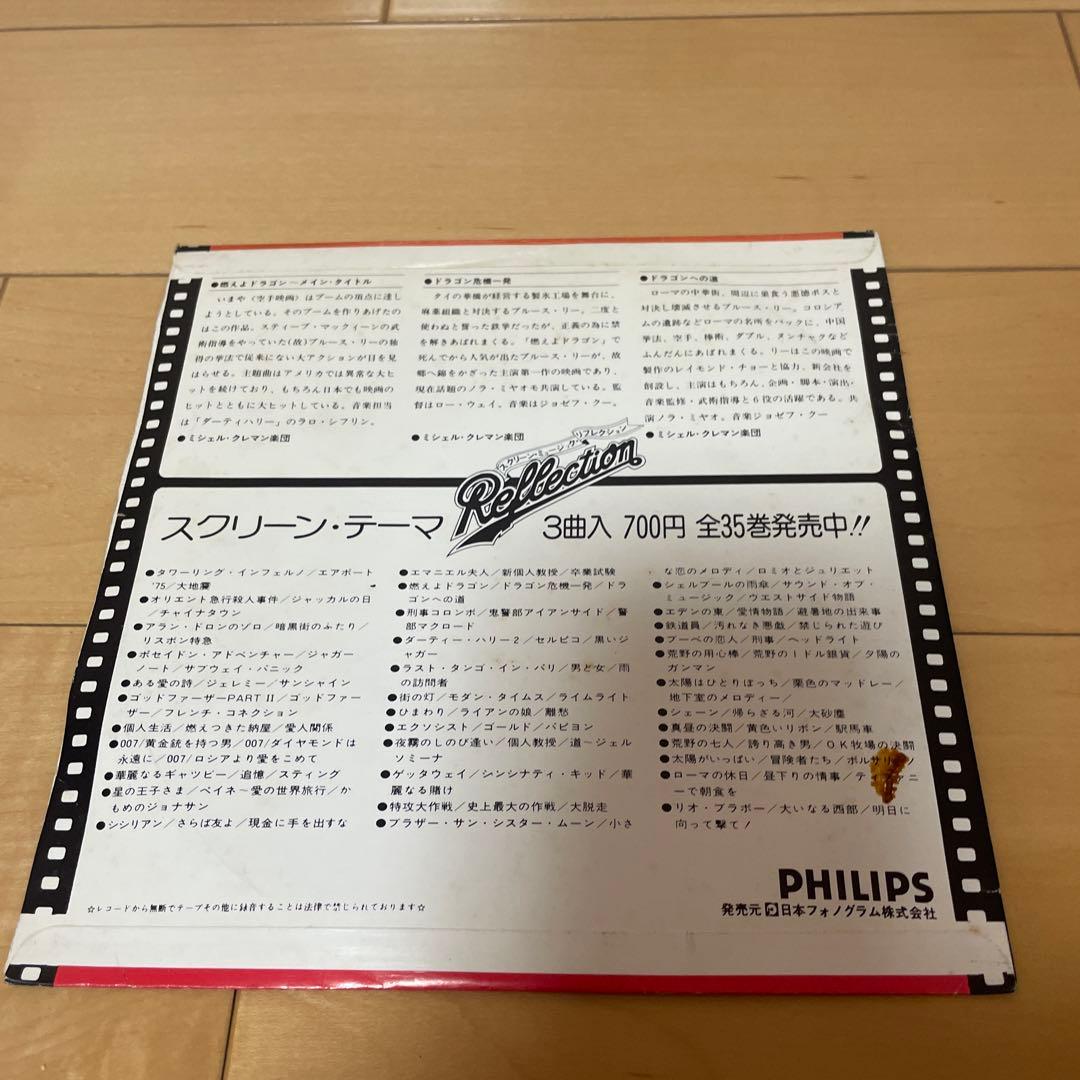 ●燃えよドラゴン～メイン・タイトル
いまや〈空手映画〉はブームの頂点に達し
ようとしている。そのブームを作りあげたの
はこの作品。スティーブ・マックィーンの武
術指導をやっていた(故)ブルース・リーの独
得の拳法で従来にない大アクションが目を見
はらせる。主題曲はアメリカでは異常な大ヒ
ットを続けており、もちろん日本でも映画の
ヒットとともに大ヒットしている。音楽担当
は「ダーティハリー」のラロ・シフリン。
●ミシェル・クレマン楽団
●ドラゴン危機一発
タイの華僑が経営する製氷工場を舞台に、
麻薬組織と対決するブルース・リー。二度と
使わぬと誓った鉄拳だったが、正義の為に禁
を解きあばれまくる。「燃えよドラゴン」で
死んでから人気が出たブルース・リーが、故
郷へ錦をかざった主演第一作の映画であり、
現在話題のノラ・ミヤオモ共演している。監
督はロー・ウェイ。音楽はジョゼフ・クー。
●ミシェル・クレマン楽団
●ドラゴンへの道
ローマの中華街、周辺に巣食う悪徳ボスと
対決し壊滅させるブルース・リー。コロシア
ムの遺跡などローマの名所をバックに、中国
拳法、空手、棒術、ダブル、ヌンチャクなど
ふんだんにあばれまくる。リーはこの映画で
製作のレイモンド・チョーと協力、新会社を
創設し、主演はもちろん、企画・脚本・演出・
音楽監修・武術指導と6役の活躍である。共
演ノラ・ミヤオ。音楽ジョゼフ・クー
●ミシェル・クレマン楽団
スクリーン・ミュージック・リフレクション
Reflection
スクリーン・テーマ
3曲入 700円 全35巻発売中!!
●タワーリング・インフェルノ／エアポート
'75／大地震
●オリエント急行殺人事件／ジャッカルの日
／チャイナタウン
●アラン・ドロンのゾロ／暗黒街のふたり／
リスボン特急
●ポセイドン・アドベンチャー／ジャガー
ノート／サブウェイ・パニック
●ある愛の詩／ジェレミー／サンシャイン
●ゴッドファーザーPART II／ゴッドファー
ザー／フレンチ・コネクション
●個人生活／燃えつきた納屋／愛人関係
●007／黄金銃を持つ男／007／ダイヤモンドは
永遠に／007／ロシアより愛をこめて
●華麗なるギャツビー／追憶／スティング
●星の王子さま／ペイネ～愛の世界旅行／か
もめのジョナサン
●シシリアン／さらば友よ／現金に手を出すな
●エマニエル夫人／新個人教授／卒業試験
●燃えよドラゴン／ドラゴン危機一発／ドラ
ゴンへの道
●刑事コロンボ／鬼警部アイアンサイド／警
部マクロード
●ダーティー・ハリー2／セルピコ／黒いジ
ャガー
●ラスト・タンゴ・イン・パリ／男と女／雨
の訪問者
●街の灯／モダン・タイムス／ライムライト
●ひまわり／ライアンの娘／離愁
●エクソシスト／ゴールド／パピヨン
●夜霧のしのび逢い／個人教授／道～ジェル
ソミーナ
●ゲッタウェイ／シンシナティ・キッド／華
麗なる賭け
●特攻大作戦／史上最大の作戦／大脱走
●ブラザー・サン・シスター・ムーン／小さ
な恋のメロディ／ロミオとジュリエット
●シェルブールの雨傘／サウンド・オブ・
ミュージック／ウエストサイド物語
●エデンの東／愛情物語／避暑地の出来事
●鉄道員／汚れなき悪戯／禁じられた遊び
●ブーベの恋人／刑事／ヘッドライト
●荒野の用心棒／荒野の1ドル銀貨／夕陽の
ガンマン
●太陽はひとりぼっち／栗色のマッドレー／
地下室のメロディー／
●シェーン／帰らざる河／大砂塵
●真昼の決闘／黄色いリボン／駅馬車
●荒野の七人／誇り高き男／OK牧場の決闘
●太陽がいっぱい／冒険者たち／ボルサリーノ
●ローマの休日／昼下りの情事／ティファニ
ーで朝食を
●リオ・ブラボー／大いなる西部／明日に
向って撃て！
☆レコードから無断でテープその他に録音することは法律で禁じられております☆
PHILIPS
発売元 日本フォノグラム株式会社